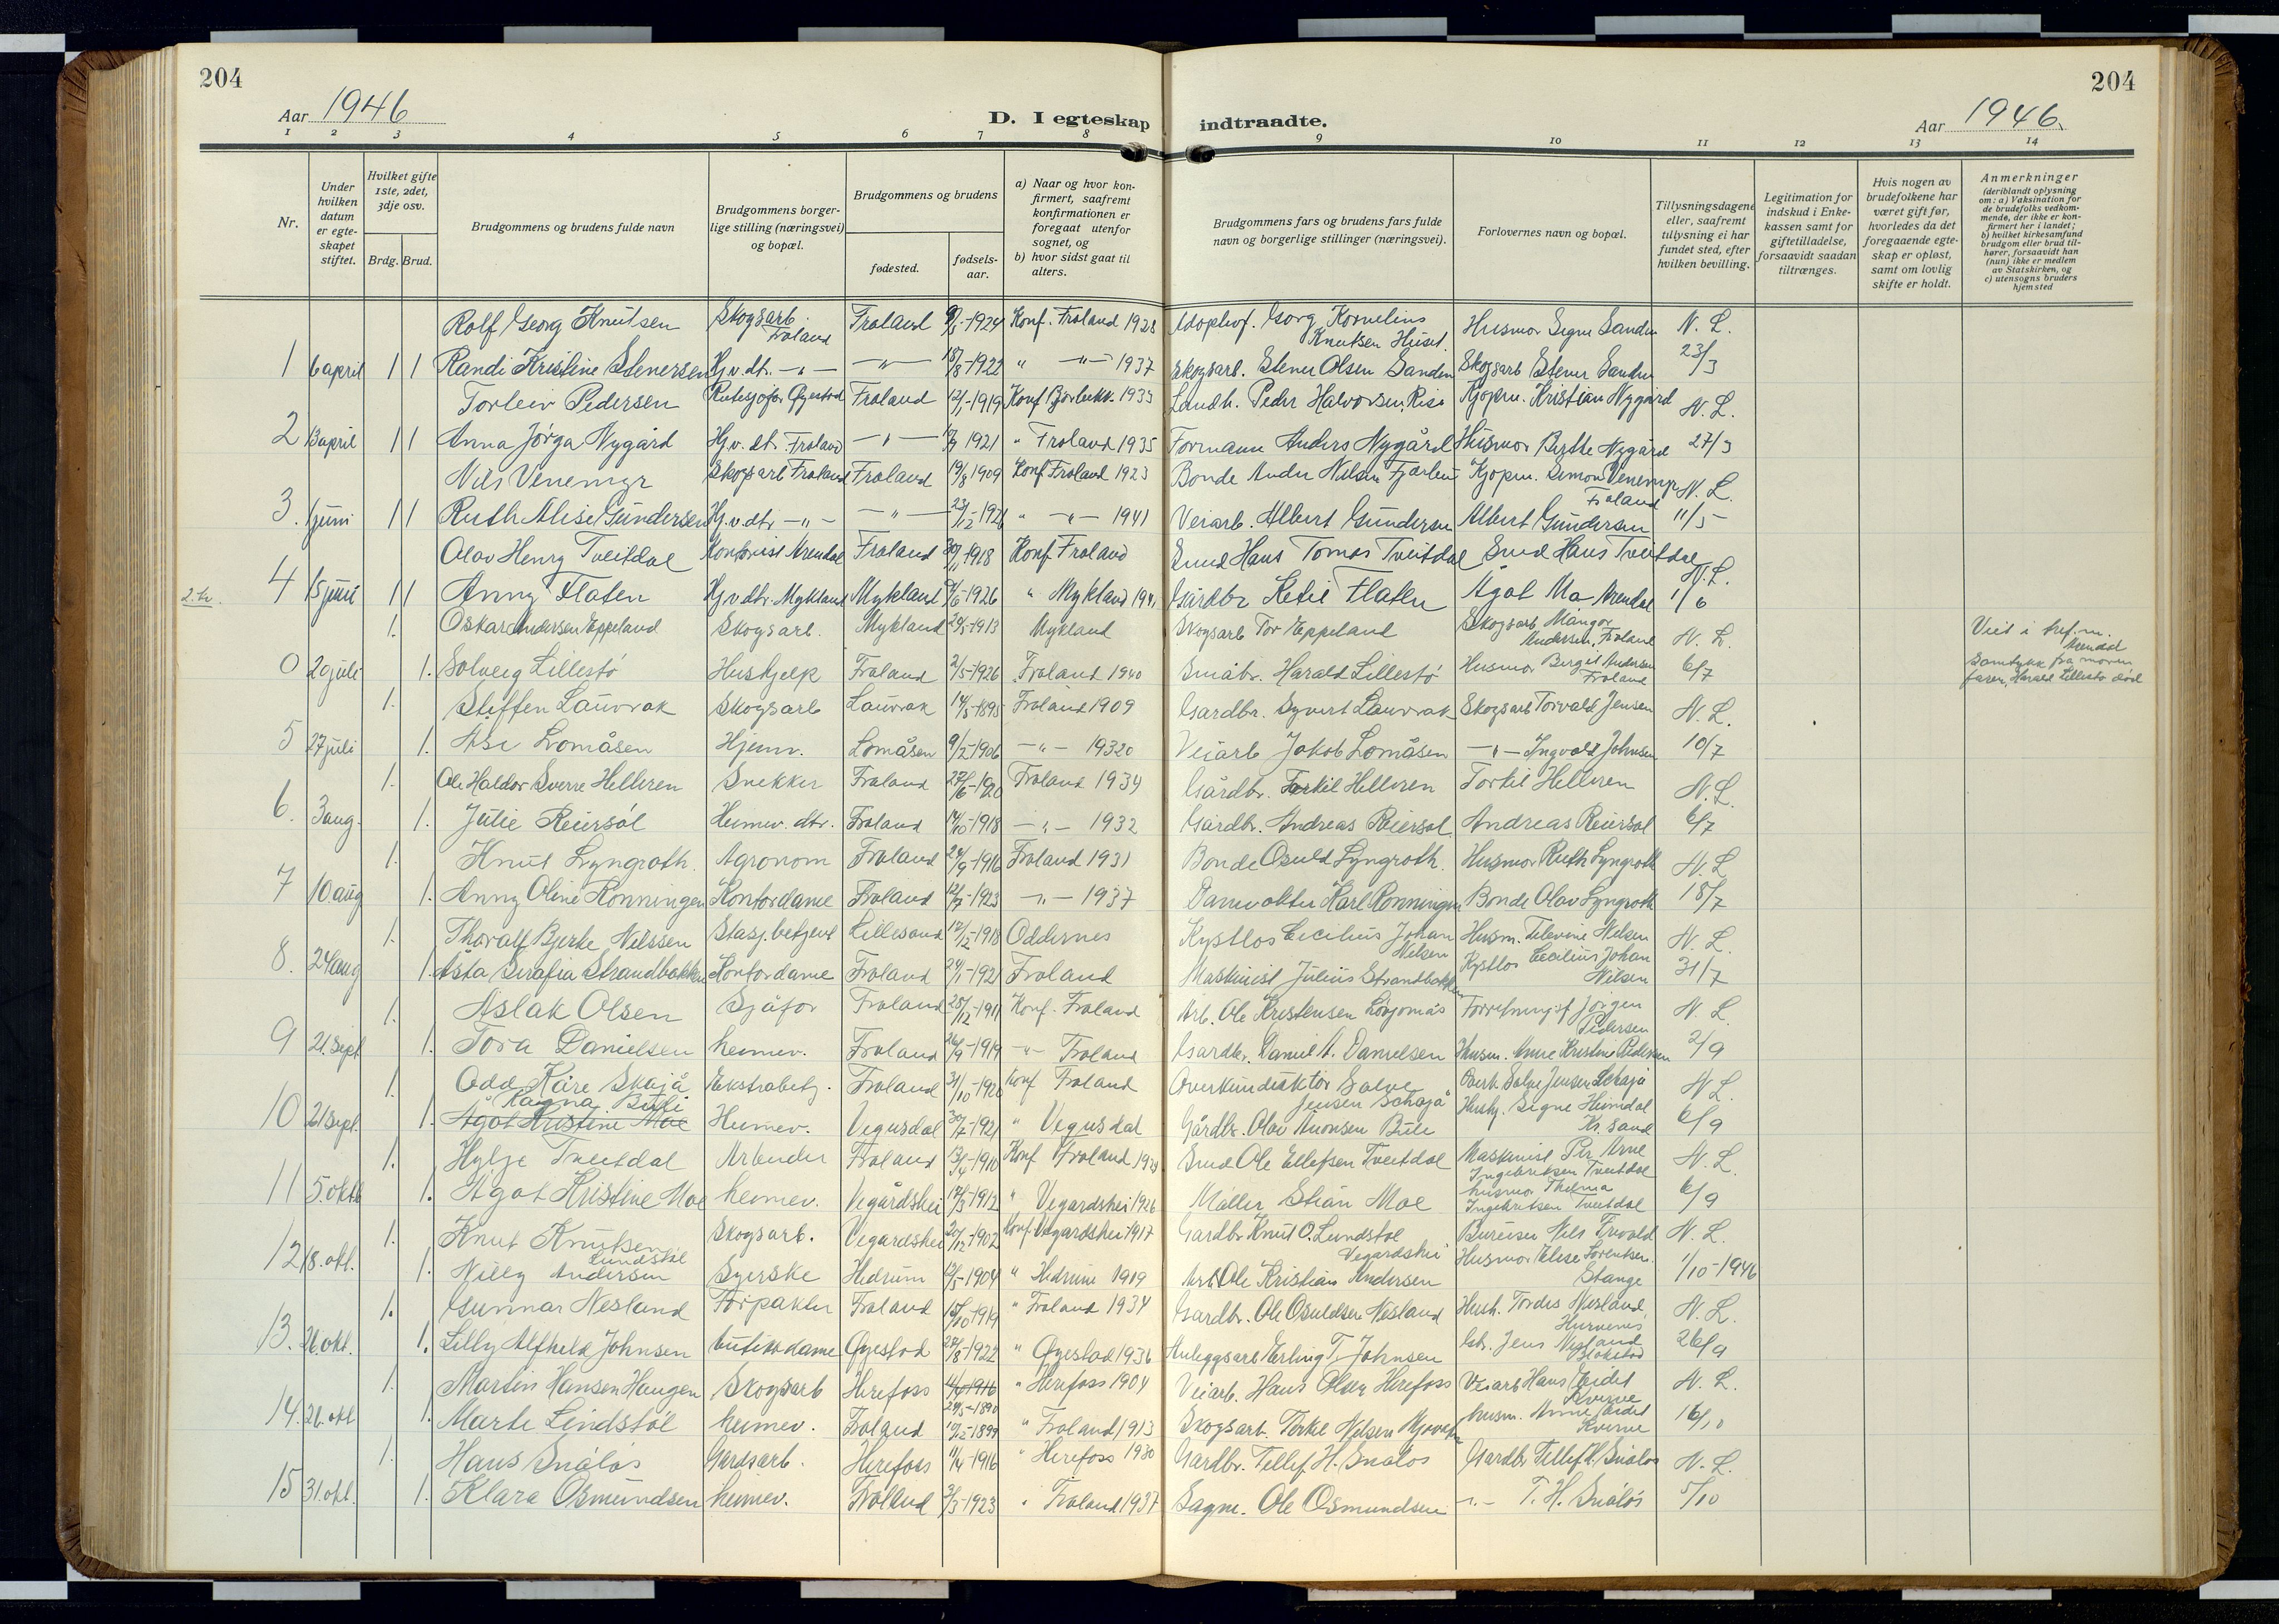 204
204
Aar 1946
D. I egteskap indtraadte.
Aar 1946.
1 2 3 4 5 6 7 8 9 10 11 12 13 14
Nr.
Under hvilken datum er egteskapet stiftet.
Hvilket gifte 1ste, 2det, 3dje osv.
Brdg. Brud.
Brudgommens og brudens fulde navn
Brudgommens borgerlige stilling (næringsvei) og bopæl.
Brudgommens og brudens
fødested.
fødselsaar.
a) Naar og hvor konfirmert, saafremt konfirmationen er foregaat utenfor sognet, og
b) hvor sidst gaat til alters.
Brudgommens fars og brudens fars fulde navn og borgerlige stillinger (næringsvei).
Forlovernes navn og bopæl.
Tillysningsdagene eller, saafremt tillysning ei har fundet sted, efter hvilken bevilling.
Legitimation for indskud i Enkekassen samt for giftetilladelse, forsaavidt saadan tiltrænges.
Hvis nogen av brudefolkene har været gift før, hvorledes da det foregaaende egteskap er opløst, samt om lovlig skifte er holdt.
Anmerkninger
(deriblandt oplysning om: a) Vaksination for de brudefolks vedkommende, der ikke er konfirmert her i landet; b) hvilket kirkesamfund brudgom eller brud tilhører, forsaavidt han (hun) ikke er medlem av Statskirken, og c) utensogns bruders hjemsted
Rolf Georg Knutsen Skogsarb. Froland Froland 1924 Konf. Froland 1928 Georg Kornelius Knutsen Huset. Husmor Signe Sanden N. L.
1 6 april 1 1 Randi Kristine Stenersen Hj.v.dt. -"- -"- 18/8-1922 " -"- 1937 Skogsarb. Stener Olsen Sanden Skogsarb Stener Sanden 23/3
Torleiv Pedersen Rutesjåfør Øyestad Froland 12/1-1919 Konf Bjorbekk 1933 Landh. Peder Halvorsen, Rise Kjøpm. Kristian Nygård N. L.
2 13 april 1 1 Anna Jörga Nygård Hj.v.dt. Froland -"- 1921 " Froland 1935 Formann Anders Nygård Husmor Birthe Nygård 27/3
Nils Venemyr Skogsarb Froland Froland 19/8 1909 Konf Froland 1923 Bonde Ander Nilsen Kjøpm. Simon Venemyr Froland N. L.
3. 1 juni 1 1 Ruth Alise Gundersen Hj.v.dtr -"- -"- 23/12-1926 " -"- 1941 Veiarb. Albert Gundersen Albert Gundersen 11/5
Olav Henry Tveitdal Kontorist Arendal Froland 30/11-1918 Konf. Froland Smed Hans Tomas Tveitdal Smed Hans Tveitdal N. L.
2. tr. 4 15 juni 1 1 Anny Flaten Hj.v.dtr. Mykland Mykland 1926 " Mykland 1941 Gårdbr Ketil Flaten Ågot Mo Arendal 1/6
1. Oskar Andersen Eppeland Skogsarb. Mykland 1913 Mykland Skogsarb Tor Eppeland Skogsarb Mangor Andersen, Froland N. L. Viet i
0 20 juli 1. Solveig Lillestö Hushjelp Froland 2/5-1926 Froland 1940 Småbr. Harald Lillestö Husmor Birgit Andersen Froland 6/7 Samtykke fra moren, faren, Harald Lillestö död
1. Steffen Lauvrak Skogsarb Lauvrak 14/5-1895 Froland 1909 Gardbr. Syvert Lauvrak Skogsarb Torvald Jensen N. L.
5 27 juli 1. Åse Lomåsen Hjemv. Lomåsen 9/2-1906 -"- 19320 Veiarb Jakob Lomåsen -"- Ingvald Johnsen 10/7
1. Ole Haldor Sverre Helleren Snekker Froland 27/6-1920 Froland 1934 Gårdbr. Torkil Helleren Torkil Helleren N. L.
6. 3 aug. 1. Julie Reiersöl Heimev. dtr. Froland 14/10-1918 -"- 1932 Gårdbr. Andreas Reiersöl Andreas Reiersöl 6/7
1. Knut Lyngroth. Agronom Froland 24/9-1916 Froland 1931 Bonde Osuld Lyngroth. Husmor Ruth Lyngroth N. L
7 10 aug 1. Anny Oline Rönningen Kontordame Froland 12/7-1923 -"- 1937 Damvokter Karl Rönningen Bonde Olav Lyngroth 18/7
1. Thoralf Bjerke Nilssen Stasj.betjent Lillesand 12/2-1918 Oddernes Kystlos Cecilius Johan Nilsen Husm. Televine Nilsen N. L.
8. 24 aug 1. Åsta Serafia Strandbakken Kontordame Froland 24/1-1921 Froland Maskinist Julius Strandbakken Kystlos Cecilius Johan Nilsen 31/7
1. Aslak Olsen Sjåfør Froland 25/12-1911 Konf. Froland Arb. Ole Kristensen Lövjomås Forretningsf Jörgen Pedersen N. L.
9 21. sept 1. Tora Danielsen heimev. Froland 26/9-1919 -"- Froland Gardbr. Daniel A. Danielsen Husm. Anne Kristine Pedersen 2/9
1. Odd Kåre Skajå Ekstrabetj. Froland 31/10-1920 Konf Froland Overkonduktör Salve Jensen Schajå Overk. Salve Jensen Schajå N L.
10 21 sept. 1. Ragna Buli Ågot Kristine Moe Heimev. Vegusdal 30/7-1921 " Vegusdal Gårdbr. Olav Aronsen Bule Hushj. Signe Heimdal Kr. sand 6/9
1. Hylje Tveitdal Arbeider Froland 1910 Konf Froland Smed Ole Ellefsen Tveitdal Maskinist Per Arne Ingebretsen Tveitdal N. L.
11 5. okt 1. Ågot Kristine Moe heimev. Vegårdshei 12/3-1912 " Vegardshei 1926 Møller Stian Moe husmor Thelma Ingebretsen Tveitdal 6/9
1. Knut Knutsen Lundstöl Skogsarb. Vegårdshei 20/12-1902 Konf. Vegardshei 1917 Gardbr Knut O. Lundstöl Vegardshei Bureiser Nils Trevold N. L.
12 18. okt. 1. Nilly Andersen Syerske Hedrum 1904 " Hedrum 1919 Arb. Ole Kristian Andersen Husmor Elise Lorentsen Stange 1/10-1946
1. Gunnar Nesland Forpakter Froland 15/10-1919 " Froland 1934 Gardbr. Ole Osuldsen Nesland Hush. Tordis Nesland N. L.
13. 26. okt. 1. Lilly Alfhild Johnsen butikkdame Øyestad 1922 " Øyestad 1936 Anleggsarb Erling T. Johnsen Jens Nesland 26/9
1. Martin Hansen Haugen Skogsarb Herefoss 24/5-1890 " Herefoss 1904 Veiarb. Hans Olsen Herefoss Veiarb Hans Eidet Kverve N. L.
14. 26. okt 1. Marte Lindstöl heimev. Froland 1899 " Froland 1913 Skogsarb. Torkel Nilsen husm. Anne Eidet Kverve 16/10
1. Hans Snålös Gardsarb. Herefoss 1916 " Herefoss 1930 Gardbr. Tellef H. Snålös Gardbr Tellef H. Snålös N. L.
15 31. okt. 1. Klara Osmundsen heimev. Froland 3/3-1923 " Froland 1937 Sagm. Ole Osmundsen -"- T. H. Snålös 5/10